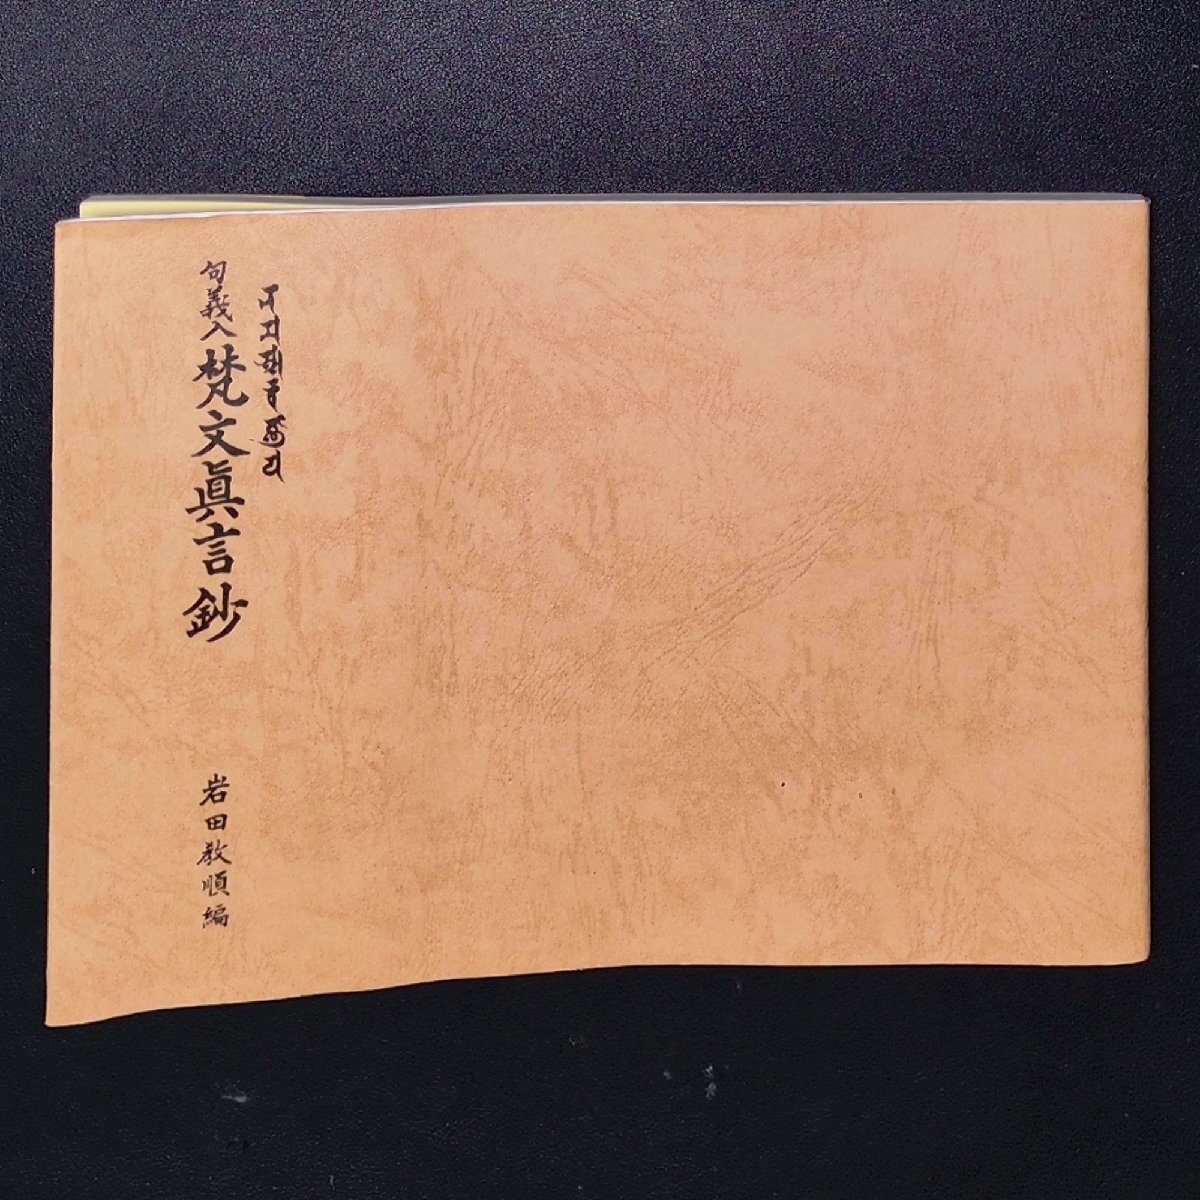 句義入 梵文眞言鈔
岩田教順編